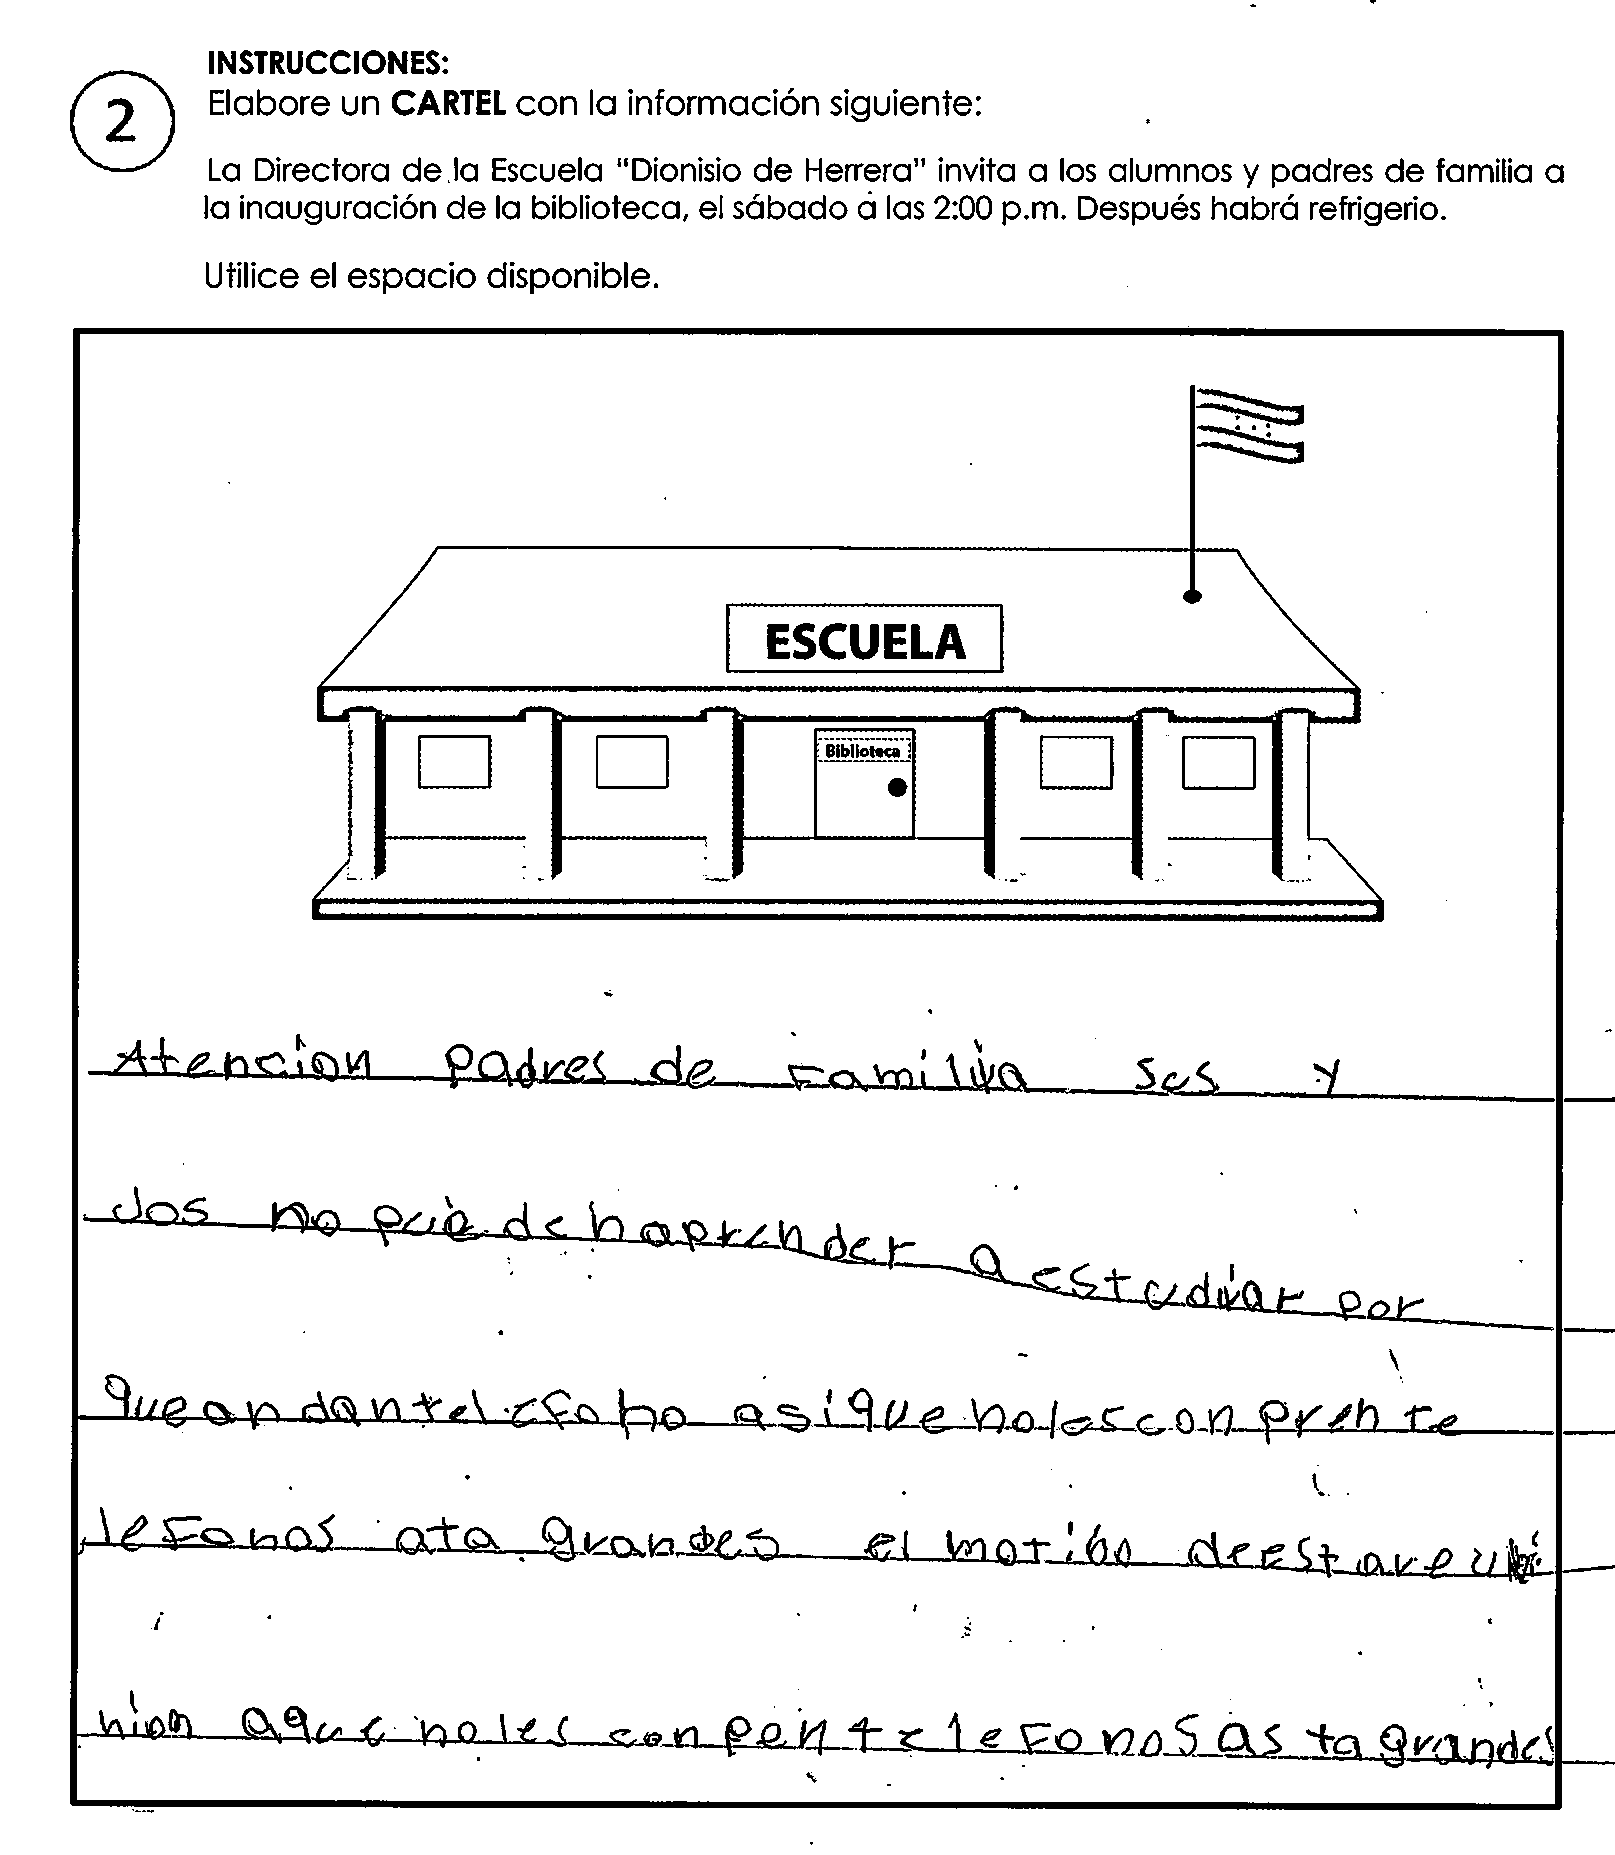 INSTRUCCIONES:
2
Elabore un CARTEL con la información siguiente:
La Directora de la Escuela "Dionisio de Herrera" invita a los alumnos y padres de familia a
la inauguración de la biblioteca, el sábado a las 2:00 p.m. Después habrá refrigerio.
Utilice el espacio disponible.
ESCUELA
Biblioteca
Atencion padres de Familia scs y
Jos no pueden haprender a estudiar por
que andan telefono asi que no les conpren te
lefonos ata grandes el motibo de esta reu
nion aque no les conpen telefonos asta grandes